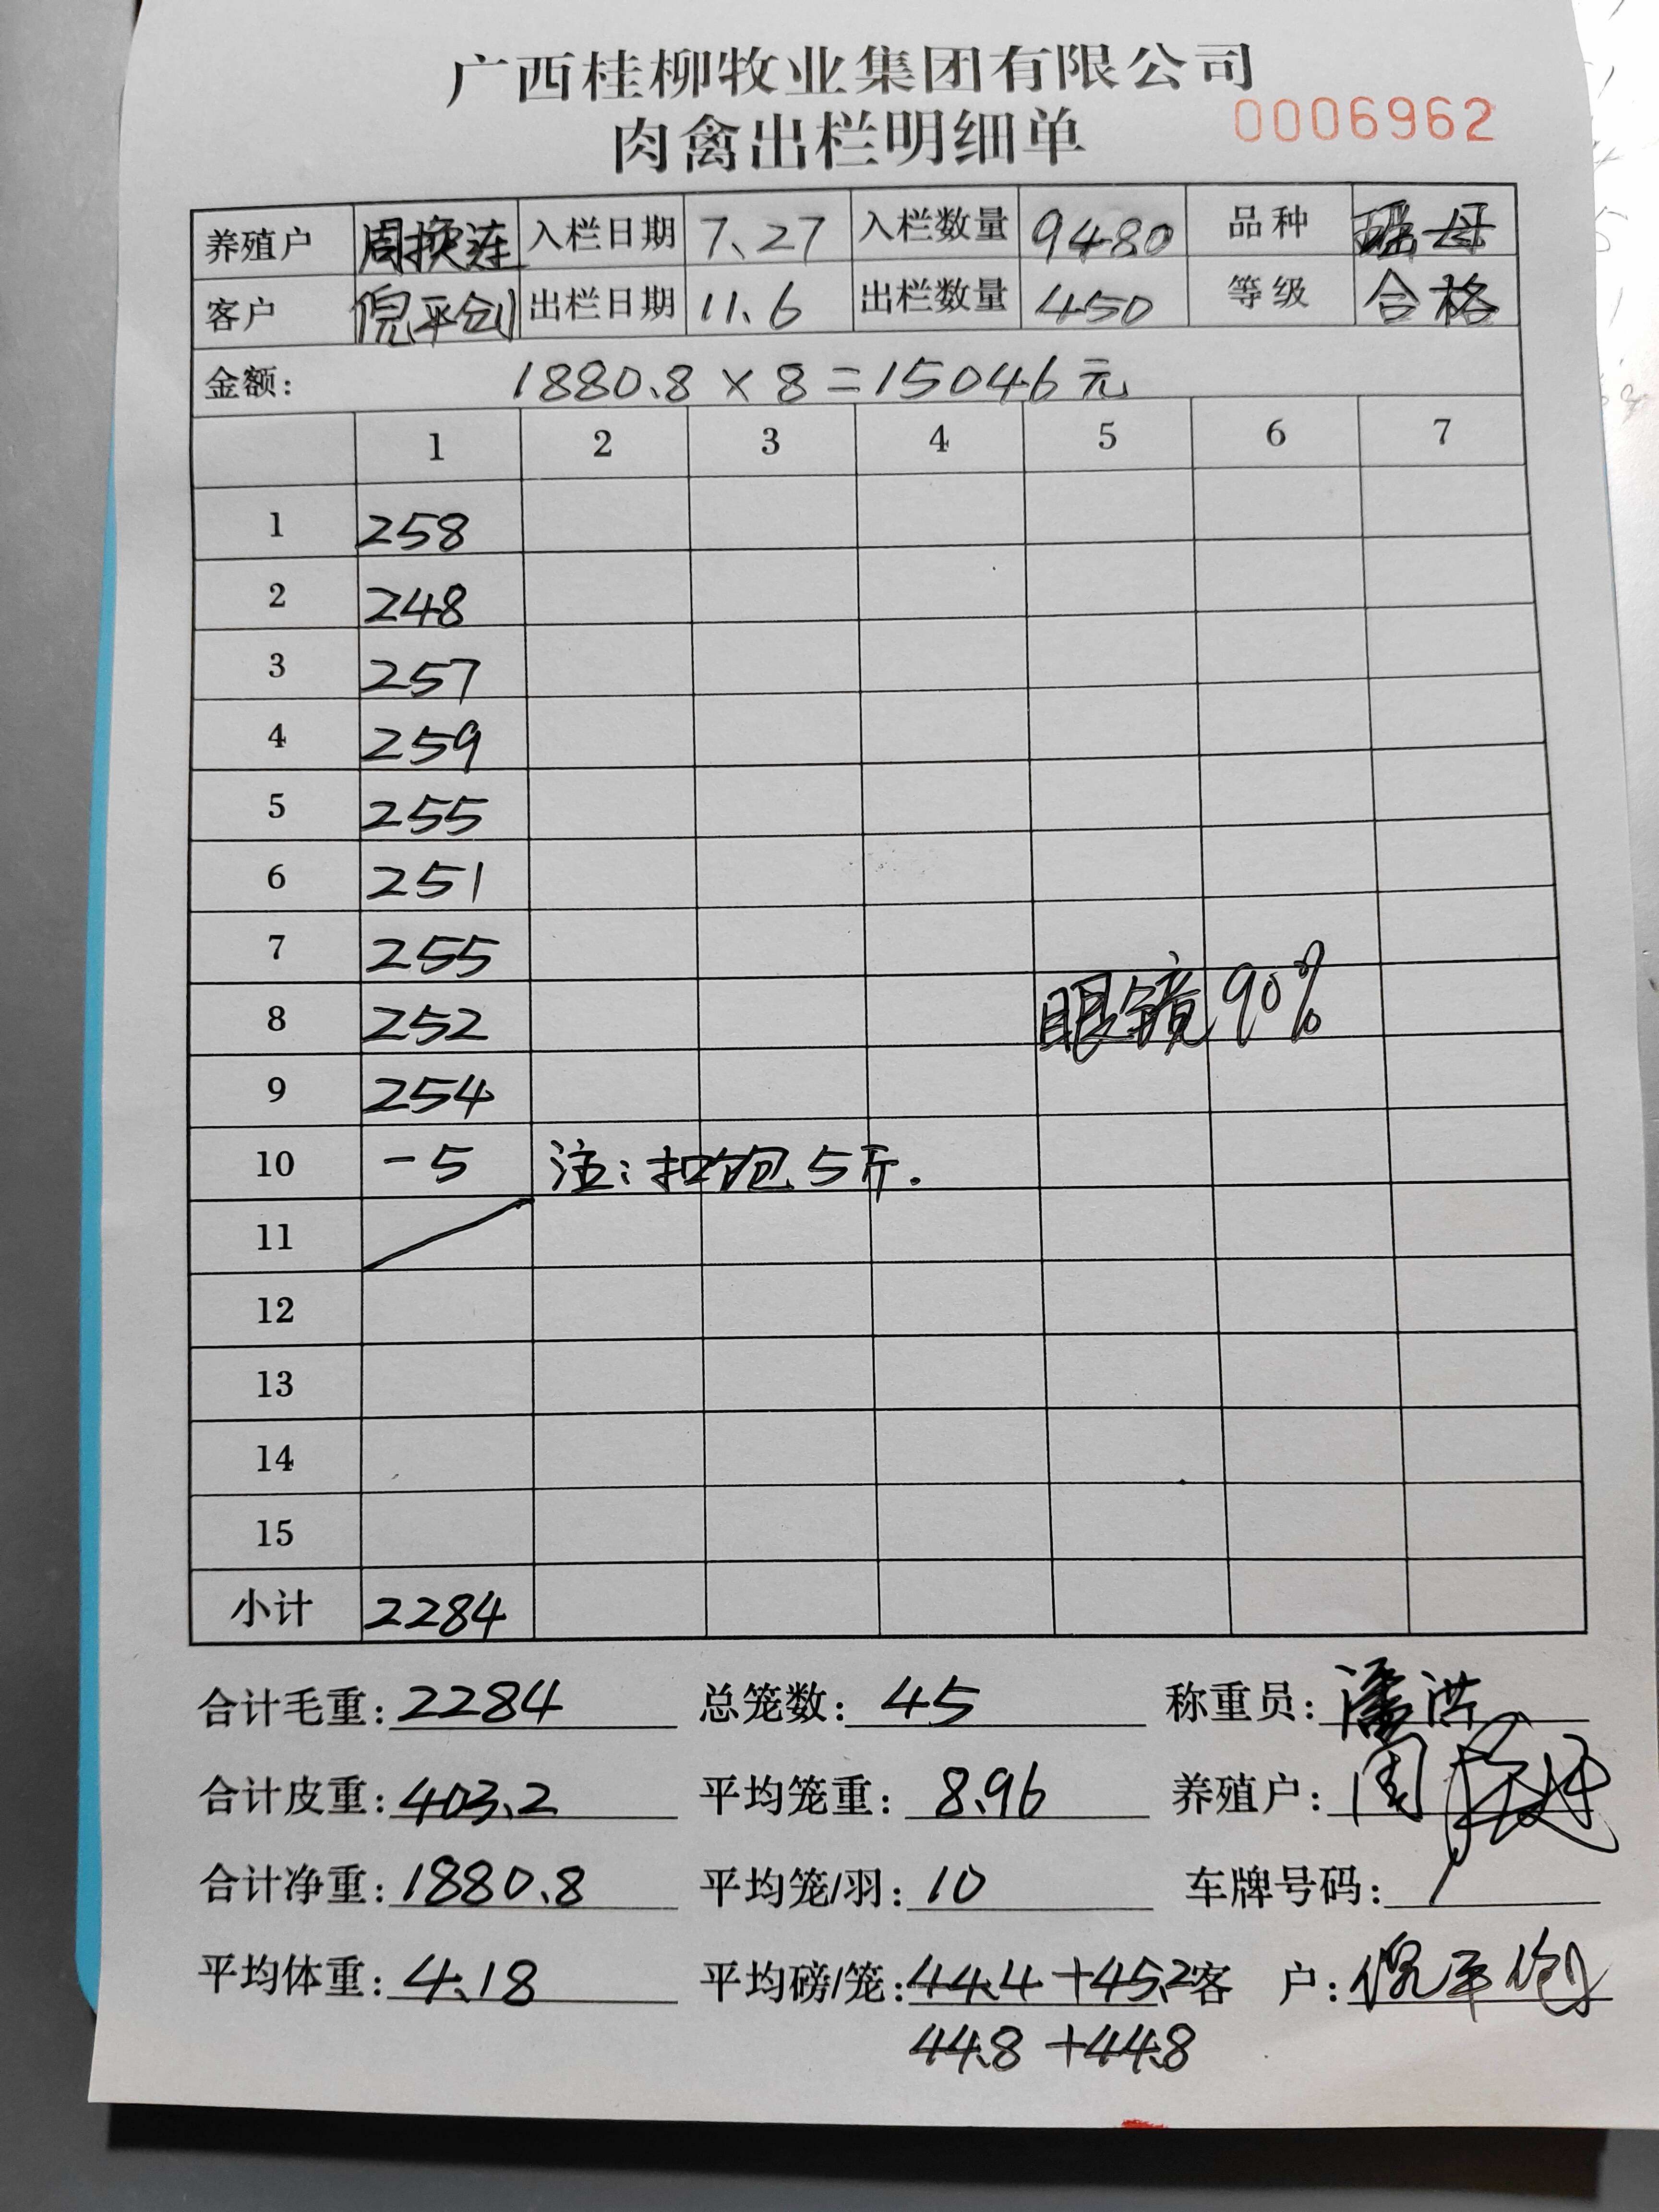 广西桂柳牧业集团有限公司
肉禽出栏明细单 0006962
养殖户 周换连 入栏日期 7、27 入栏数量 9480 品种 瑶母
客户 倪平创 出栏日期 11.6 出栏数量 450 等级 合格
金额: 1880.8×8=15046元
1 2 3 4 5 6 7
1 258
2 248
3 257
4 259
5 255
6 251
7 255
8 252 眼镜90%
9 254
10 -5 注:扣饱5斤.
11
12
13
14
15
小计 2284
合计毛重: 2284 总笼数: 45 称重员: 潘洪
合计皮重: 403.2 平均笼重: 8.96 养殖户: 周
合计净重: 1880.8 平均笼/羽: 10 车牌号码: /
平均体重: 4.18 平均磅/笼: 44.4+45.2 客 户: 倪平创
44.8+44.8